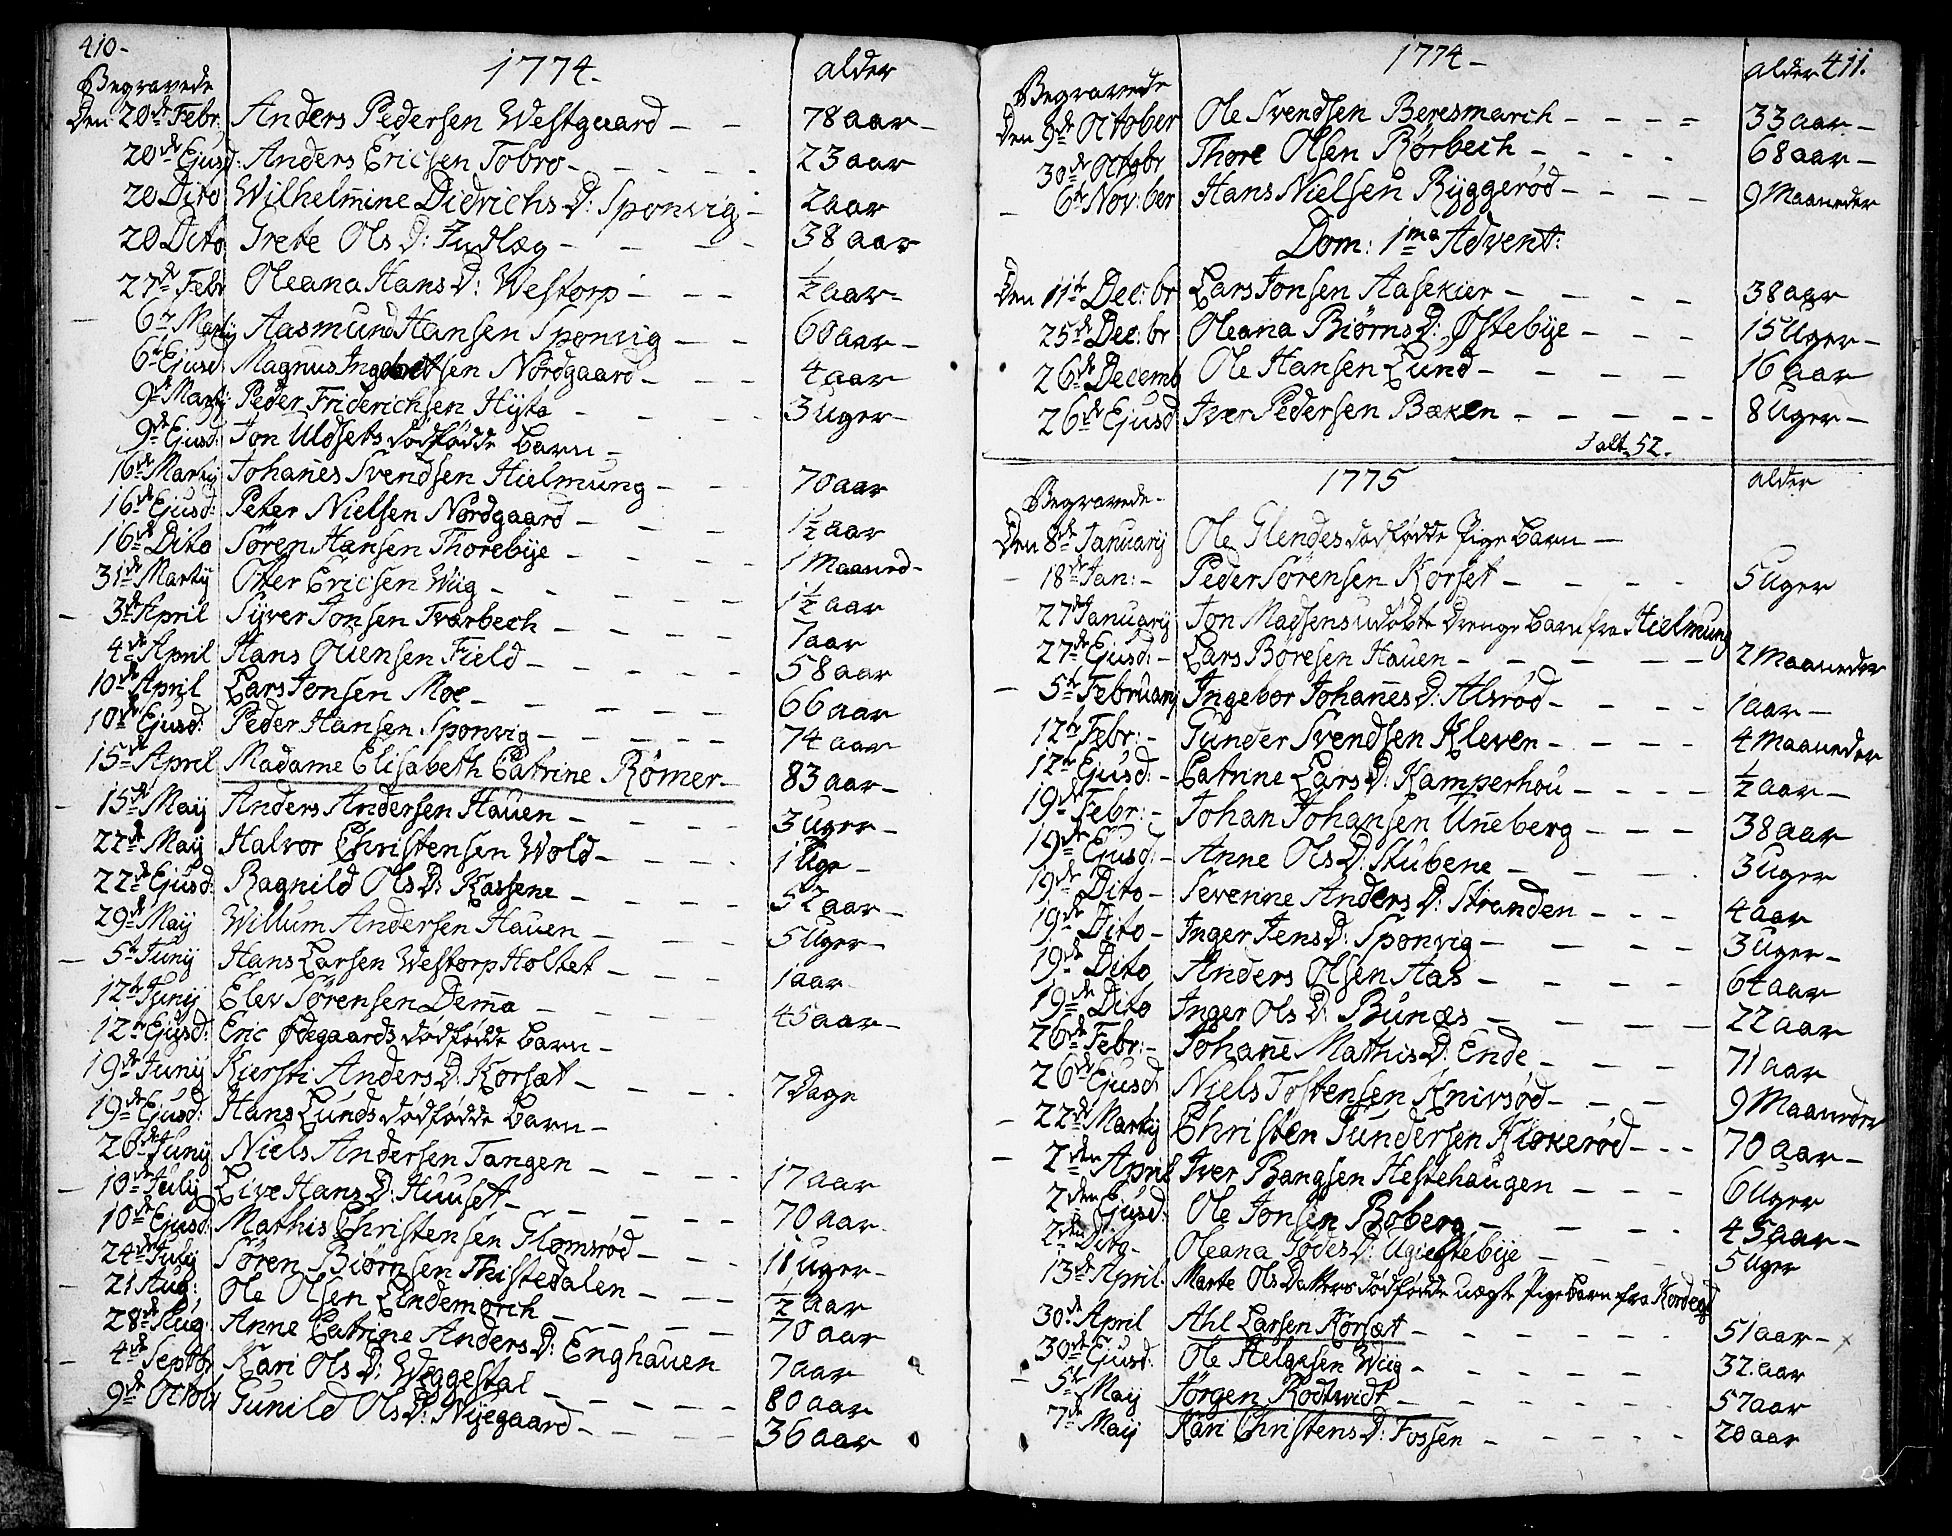 410-
1774-
Begravede
alder
Den 20de Febr: Anders Pedersen Westgaard - - 78 aar -
20de Ejusd: Anders Ericsen Tobro - - - - - 23 aar
20 Dito Wilhelmine Didrichs D: Sponvig - 2 aar
20 Dito Grete Ols D: Indlæg - - - - 38 aar
27de Febr Oleana Hans D: Westorp - - - ½ aar -
6te Martij Aasmund Hansen Sponvig - - 60 aar -
6te Ejusd: Magnus Ingebretsen Nordgaard - - - 4 aar
9de Martij Peder Friderichsen Hysta - - - 3 Uger -
9de Ejusd: Jon Uldsets dödfödde barn -
16de Martij Johanes Svendsen Hielmung - - - 70 aar
16de Ejusd: Peter Nielsen Nordgaard - - - 1½ aar
16de Dito Sören Hansen Thorebije - - - - 1 Maaned -
31de Martij Otter Ericsen Wiig - - - - - 1½ aar
3de April Syver Jonsen Tværbech - - - - 7 aar
4de April Hans Ouensen Field - - - - 58 aar
10de April Lars Jonsen Moe - - - - - 66 aar
10de Ejusd: Peder Hansen Sponvig - - - - - 74 aar
15de April Madame Elisabeth Catrine Römer - 83 aar -
15de Maij Anders Andersen Hauen - - - - 3 Uger -
22de Maij Halvor Christensen Wold - - - - 1 Uge -
22de Ejusd: Ragnild Ols D: Kassene - - - - - 52 aar -
29de Maij Willum Andersen Hauen - - - - 5 Uger -
5te Junij Hans Larsen Westorp Holtet - - - 1 aar -
12te Junij Elev Sörensen Dema - - - - - 45 aar -
12te Ejusd: Eric Ödegaards dödfödde barn -
19de Junij Kiersti Anders D: Korsæt - - - - 7 Dage
19de Ejusd: Hans Lunds dödfödde barn -
26de Junij Niels Andersen Tangen - - - - 17 aar
10de Julij Live Hans D: Huuset - - - - - 70 aar
10de Ejusd: Mathis Christensen Glomsröd - - - 11 Uger -
24de Julij Sören Biörnsen Thistedalen - - - ½ aar
21 Aug: Ole Olsen Lindemarch - - - - 70 aar
28de Aug Anne Catrine Anders D: Enghauen 7 aar
4de Septbr Kari Ols D: Weggestal - - - - - 80 aar
9de Octobr Gunild Ols D: Nyegaard - - - - 36 aar
1774-
alder 411.
Begravede
Den 9de October Ole Svendsen Beresmarch - - - = 33 aar -
30de Octobr Thore Olsen Rörbech - - - - 68 aar -
6te Nov:ber Hans Nielsen Ryggeröd - - - - 9 Maaneder
Dom: 1ma Advent:
Den 11te Dec:br Lars Jonsen Aasekier - - - - 38 aar
25de Dec:br Oleana Biörns D: Østebye - - - 15 Uger -
26de Decemb Ole Hansen Lund - - - - 16 aar
26de Ejusd Iver Pedersen Bæken - - - - - 8 Uger -
Jalt 52.
1775
Begravede -
alder
Den 8de Januarij Ole Glendes dödfödde Pige barn -
18de Jan: - Peder Sörensen Korset - - - - 5 Uger
27 Januarij Jon Madsens udöbte Drenge barn fra Hielmung
27de Ejusd: - Lars Böresen Hauen - - - - - 2 Maaneder
5te Februarij Ingebor Johanes D: Alsröd - - - - 1 aar -
12te Febr: - Gunder Svendsen Kleven - - - - 4 Maaneder
12te Ejusd: - Catrine Lars D: Kamperhou - - - - ½ aar -
19de Febr: - Johan Johansen Uneberg - - - 38 aar
19de Ejusd: - Anne Ols D: Stubene - - - - 3 Uger
19de Dito - Severine Anders D: Stranden - - - 4 aar
19de Dito - Inger Jens D: Sponvig - - - - 3 Uger -
19de Dito Anders Olsen Aas - - - - - 64 aar
19de Dito Inger Ols D: Bunæs - - - - - 22 aar
26de Febr: - Johane Mathis D: Ende - - - 71 aar
26de Ejusd: Niels Tostensen Knivsöd - - - - 9 Maaneder
22de Martij Christen Gundersen Klokeröd - - - 70 aar -
2den April Iver Bangsen Hestehaugen - - - 6 Uger
2den Ejusd: Ole Jonsen Boberg - - - - 45 aar -
2den Dito - Oleana D: - - - 5 Uger
13de April Marte Ols Datters dödfödde uægte Pige barn fra
30de April Ahl Larsen Korsæt - - - - - - 51 aar -
30de Ejusd: Ole Helgesen Wiig - - - - - - 32 aar
5te Maij Jörgen Rodtvidt - - - - - - 57 aar
7de Maij Kari Christens D: Fossen - - - - - 20 aar